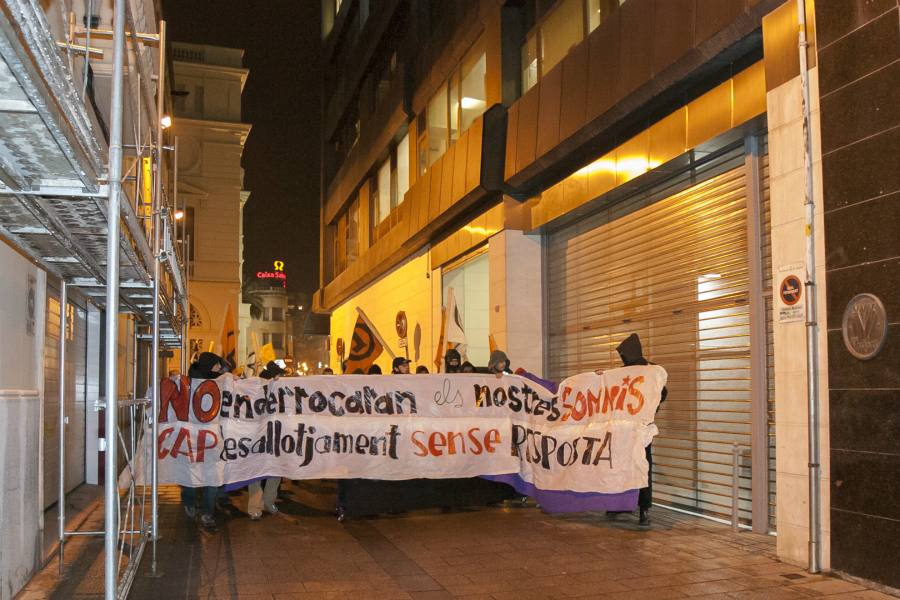 Caixa Sab
NO enderrocaran els nostres SOMNIS
CAP desallotjament sense RESPOSTA